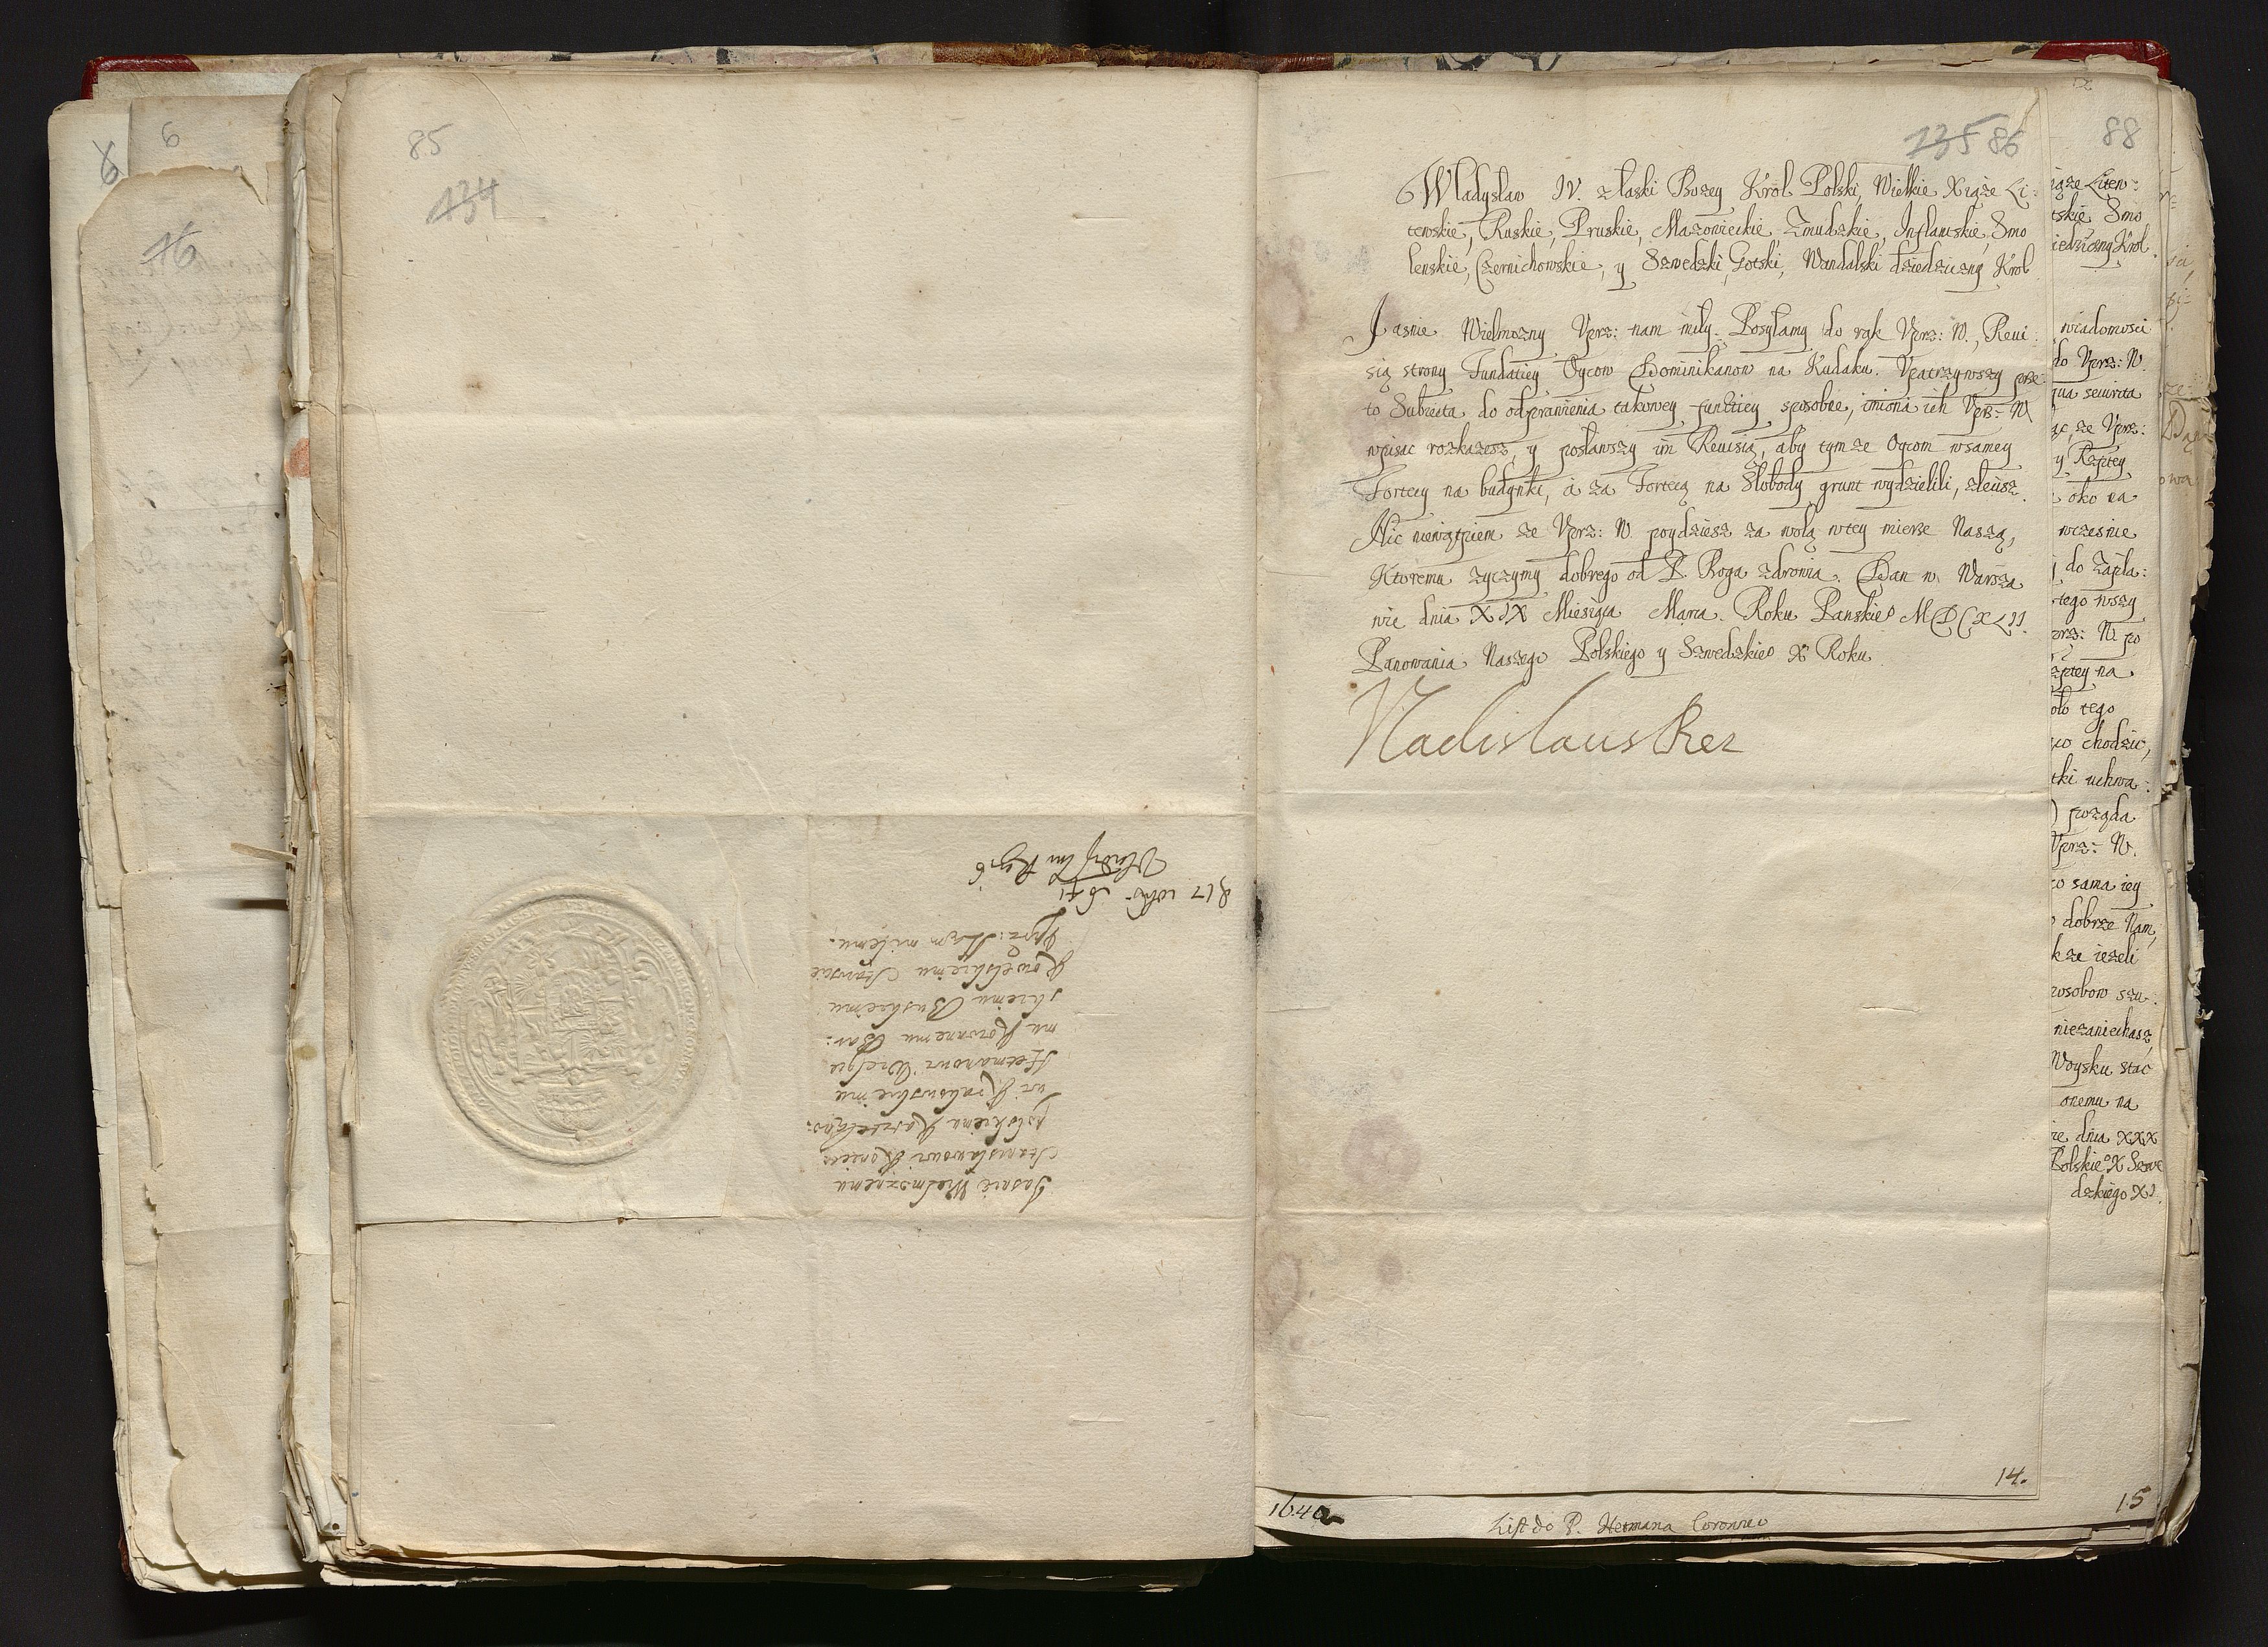 85
134
Jasnie Wielmoznemu
Stanisławowi Koniec
polskiemu Kasztelano:
wi Krakowskiemu
Hetmanowi Wielgie
mu Koronnemu Bar:
skiemu Buskiemu
Kowelskiemu Staroscie
Vprz: Nam miłemu.
6
16
135 86
Władysław IV. z łaski Bozey Krol Polski, Wielkie Xiąże Li-
tewskie, Ruskie, Pruskie, Mazowieckie Zmudzkie, Inflantskie, Smo
lenskie, Czernichowskie, y Szwedzki, Gotski, Wandalski dziedziczny Krol
Jasnie Wielmozny Vprz: nam miły. Posyłamy do rąk Vprz: W., Rewi-
sią strony Fundatiey Oycow Dominikanow na Kudaku. Vpatrzywszy prze
to Subiecta do odprawienia takowey functiey sposobne, imiona ich Vprz: W.
wpisac rozkazesz, y posławszy im Rewisią, aby tym ze Oycom wsamey
Fortecy na budynki, a za Fortecą na Słobody grunt wydzielili, zleisz.
Nic niewątpiem ze Vprz: W. poydziesz za wolą wtey mierze Naszą,
Ktoremu zyczymy dobrego od P. Boga zdrowia. Dan w Warsza
wie dnia XIX Miesiąca Marca. Roku Panskieo MDCXLII.
Panowania Naszego Polskiego y Szwedzkieo X Roku
Vladislaus Rex
14.
88
iąze Litew:
tskie Smo
iedziczny Krol
wiadomosci
do Vprz: W.
ze Vprz:
y Rzptey
oko na
wczesnie
do Zapła:
tego wszy
prz: W. po
zptey na
oło tego
co chodzic,
tki uchwa:
poząda
Vprz: W.
co sama iey
dobrze Nam,
k ze iezeli
posobow szu:
niezaniechasz
Woysku stac
onemu na
ie dnia XXX
Polskieo X Szwe
dzkiego XI
15
1640
List do P. Hetmana Coronneo